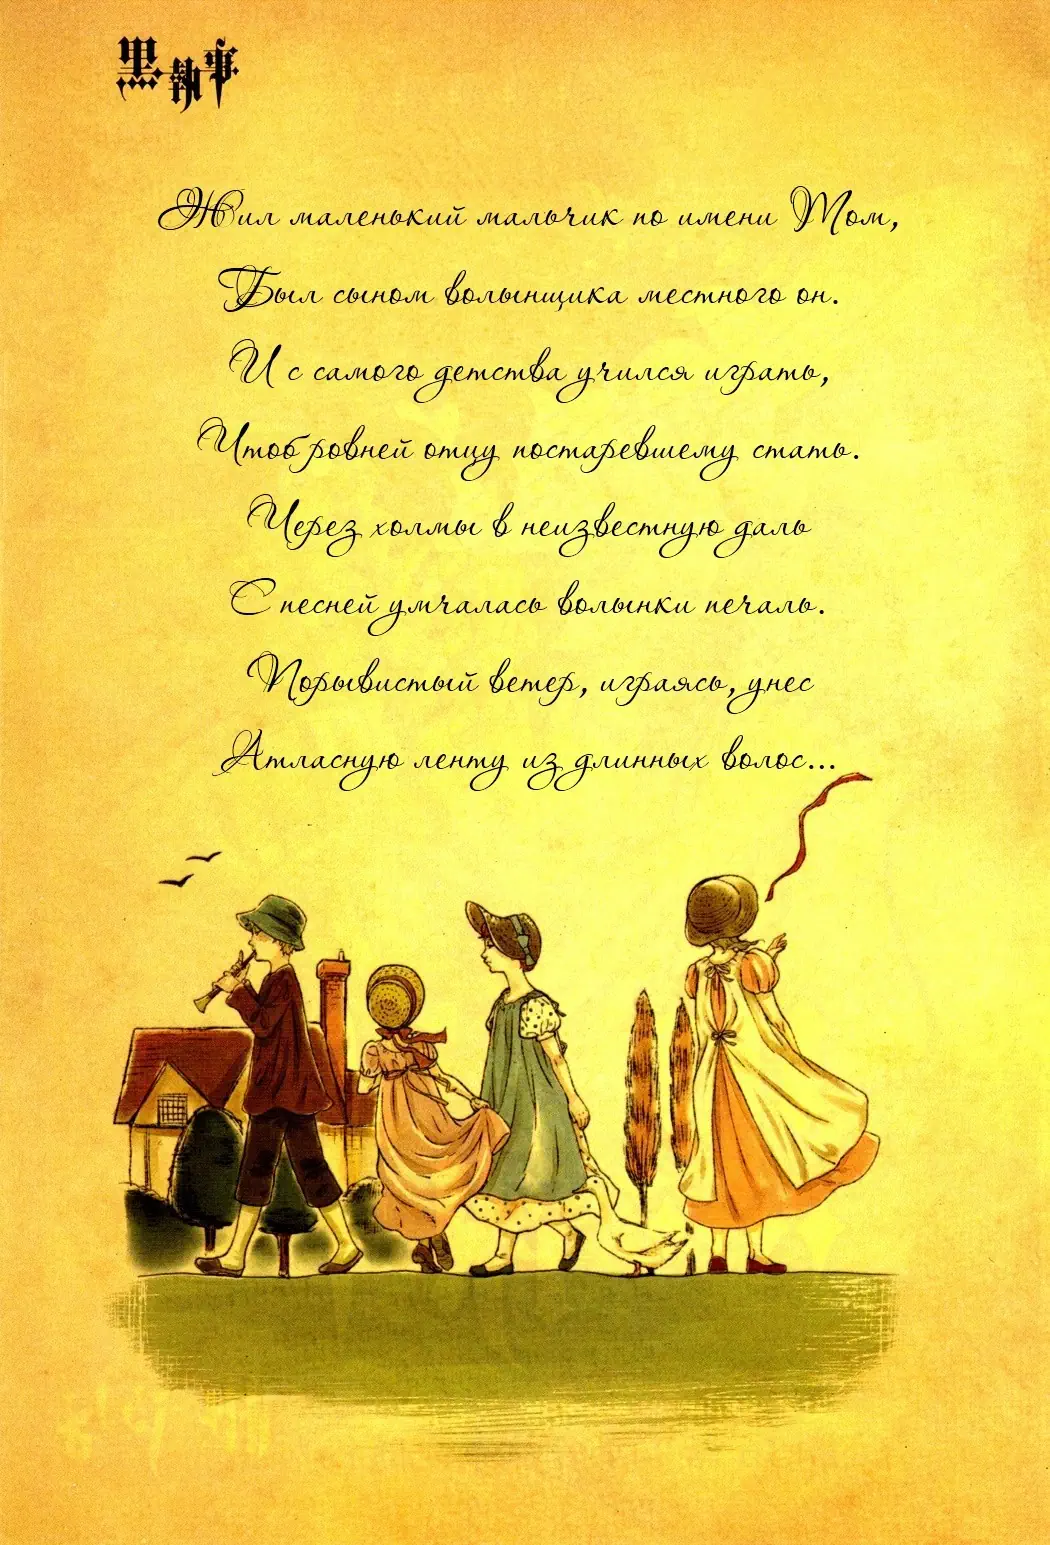 黒執事
Жил маленький мальчик по имени Том,
Был сыном волынщика местного он.
И с самого детства учился играть,
Чтоб ровней отцу постаревшему стать.
Через холмы в неизвестную даль
С песней умчалась волынки печаль.
Порывистый ветер, играясь, унес
Атласную ленту из длинных волос...